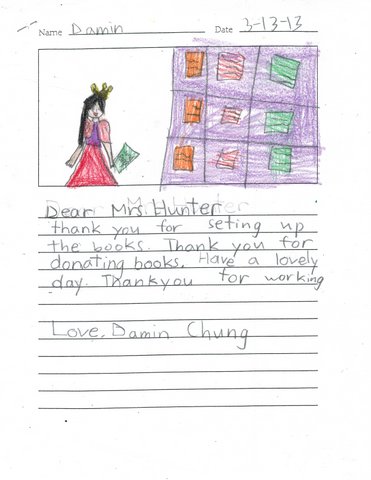 Name Damin Date 3-13-13
Dear Mrs Hunter
thank you for seting up
the books. Thank you for
donating books. Have a lovely
day. Thankyou for working
Love, Damin Chung